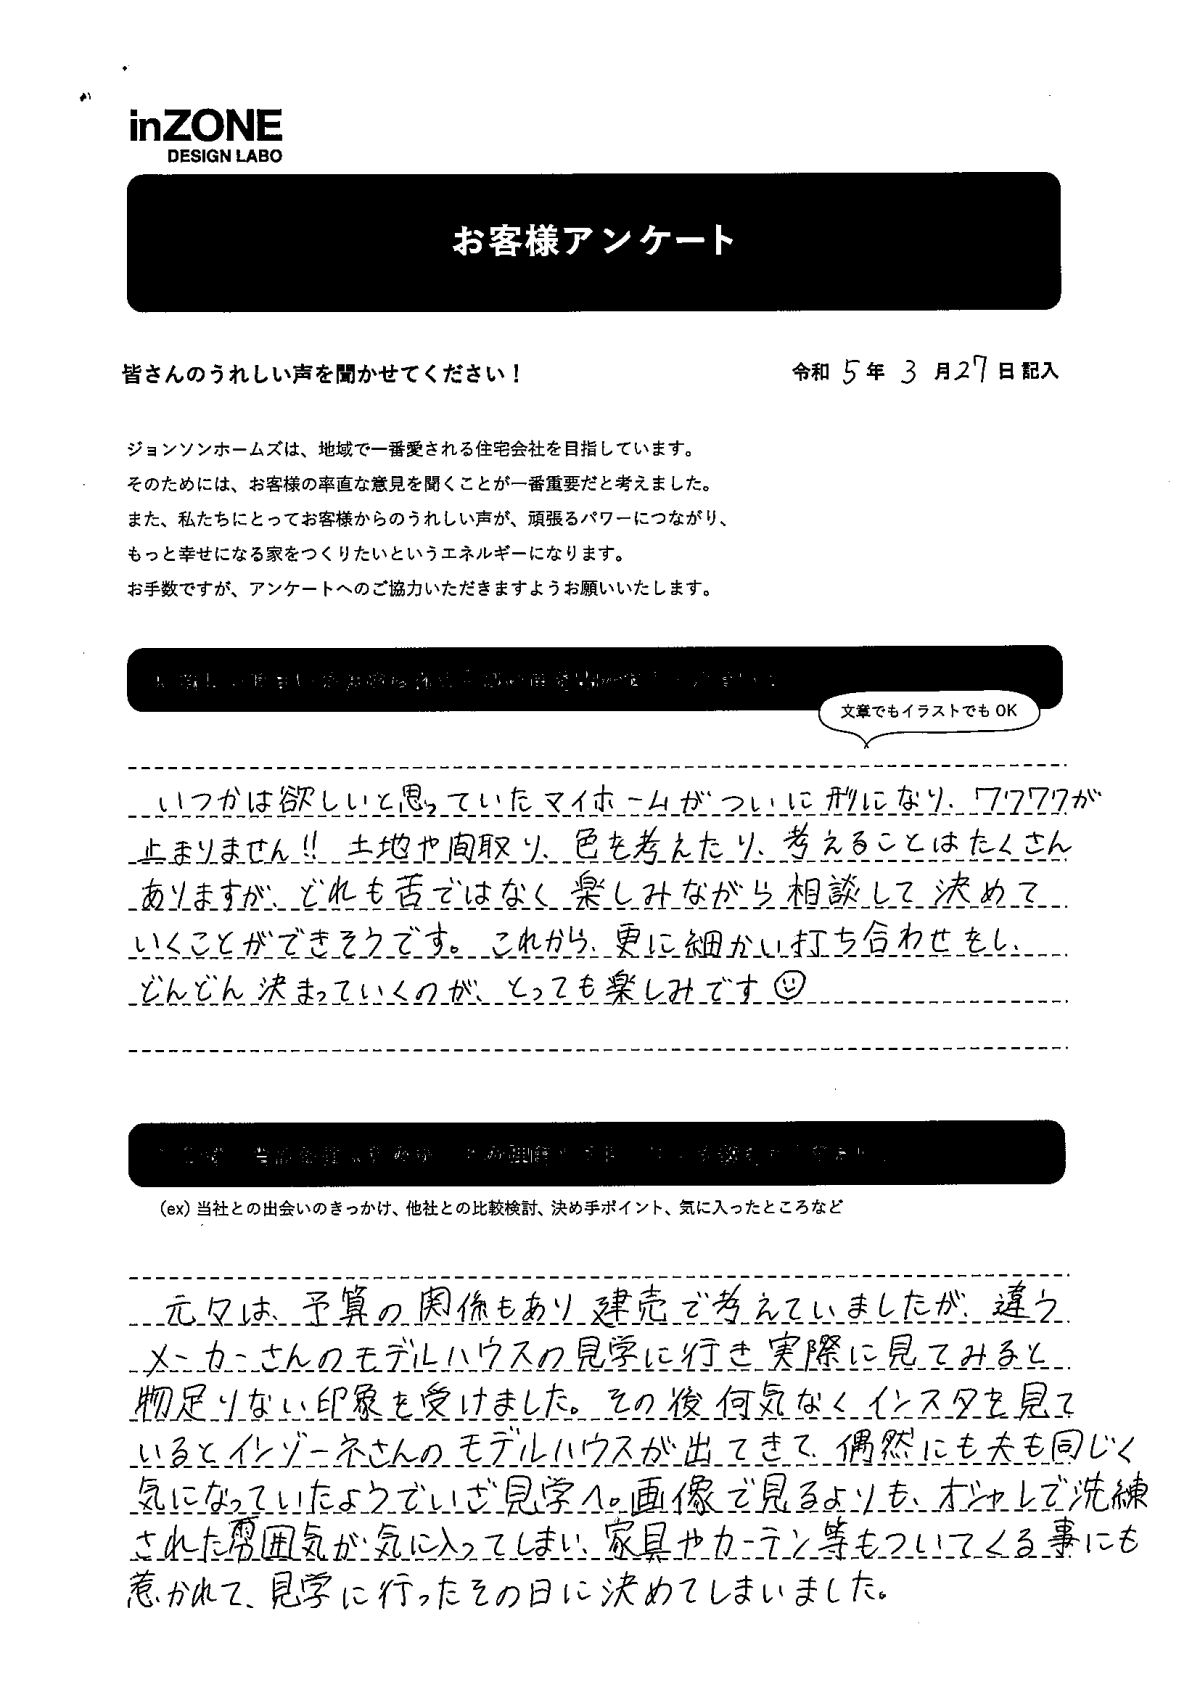 inZONE
DESIGN LABO
お客様アンケート
皆さんのうれしい声を聞かせてください！
令和 5 年 3 月 27 日 記入
ジョンソンホームズは、地域で一番愛される住宅会社を目指しています。
そのためには、お客様の率直な意見を聞くことが一番重要だと考えました。
また、私たちにとってお客様からのうれしい声が、頑張るパワーにつながり、
もっと幸せになる家をつくりたいというエネルギーになります。
お手数ですが、アンケートへのご協力いただきますようお願いいたします。
文章でもイラストでも OK
いつかは欲しいと思っていたマイホームがついに形になり、ワクワクが
止まりません!! 土地や間取り、色を考えたり、考えることはたくさん
ありますが、どれも苦ではなく楽しみながら相談して決めて
いくことができそうです。これから、更に細かい打ち合わせをし、
どんどん決まっていくのが、とっても楽しみです☺
（ex）当社との出会いのきっかけ、他社との比較検討、決め手ポイント、気に入ったところなど
元々は、予算の関係もあり建売で考えていましたが、違う
メーカーさんのモデルハウスの見学に行き実際に見てみると
物足りない印象を受けました。その後何気なくインスタを見て
いるとインゾーネさんのモデルハウスが出てきて、偶然にも夫も同じく
気になっていたようでいざ見学へ。画像で見るよりも、オシャレで洗練
された雰囲気が気に入ってしまい、家具やカーテン等もついてくる事にも
惹かれて、見学に行ったその日に決めてしまいました。